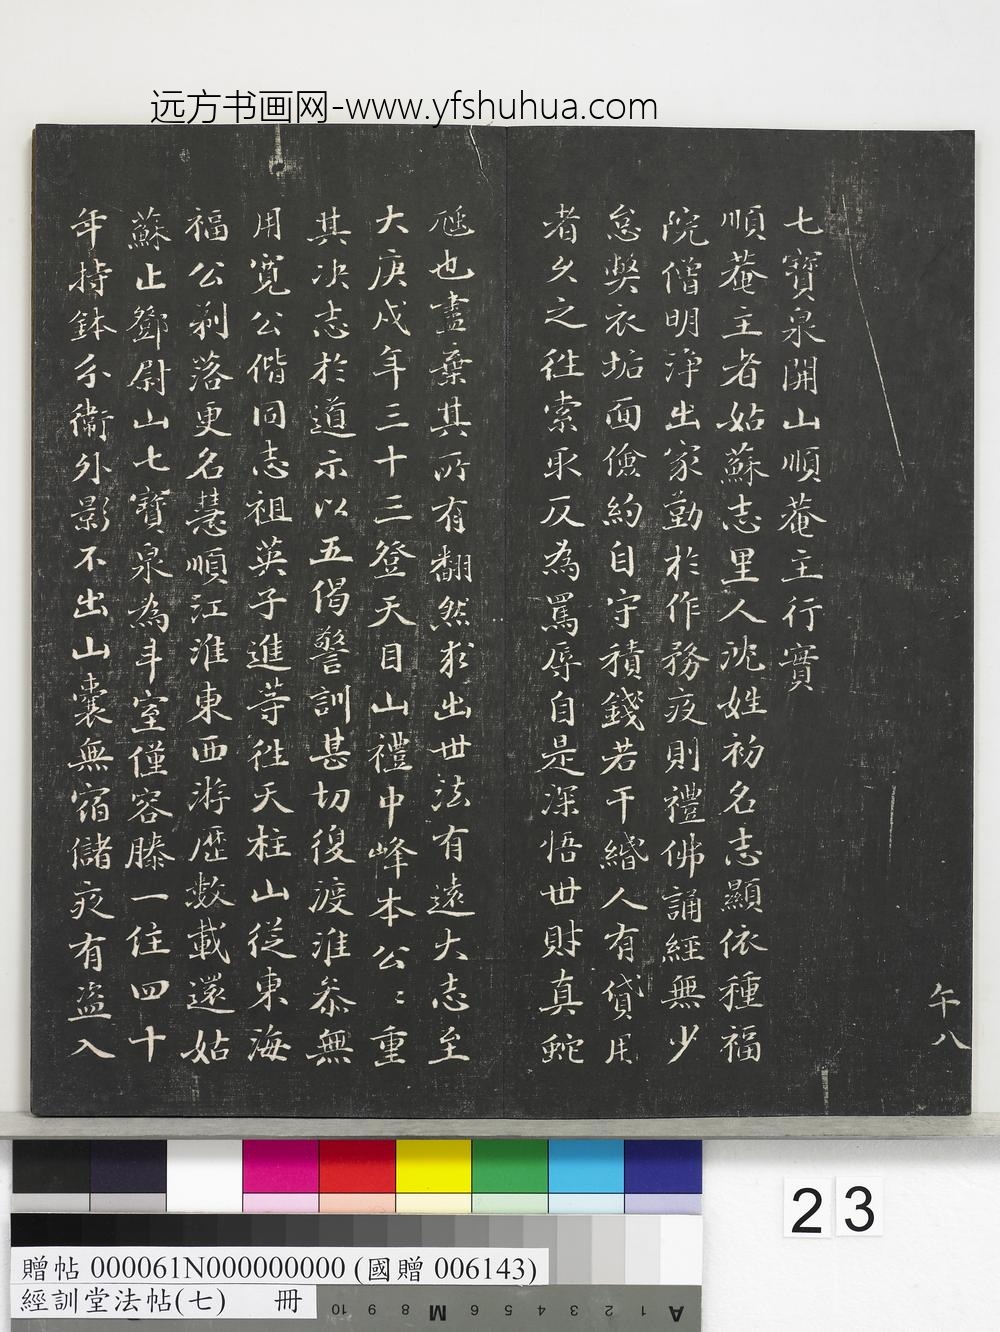 远方书画网-www.yfshuhua.com
午八
七寶泉開山順菴主行實
順菴主者姑蘇志里人沈姓初名志顯依種福
院僧明淨出家勤於作務夜則禮佛誦經無少
怠獘衣垢面儉約自守積錢若干緡人有貸用
者久之往索取反為罵辱自是深悟世財真蛇
虺也盡棄其所有翻然求出世法有遠大志至
大庚戌年三十三登天目山禮中峰本公〻重
其决志於道示以五偈警訓甚切復渡淮参無
用寬公偕同志祖英子進等往天柱山從東海
福公剃落更名慧順江淮東西游歷数載還姑
蘇止鄧尉山七寶泉為斗室僅容膝一住四十
年持鉢分衛外影不出山囊無宿儲夜有盗入
23
贈帖 000061N000000000 (國贈 006143)
經訓堂法帖(七) 冊
10 9 8 M 6 5 4 3 2 1 A